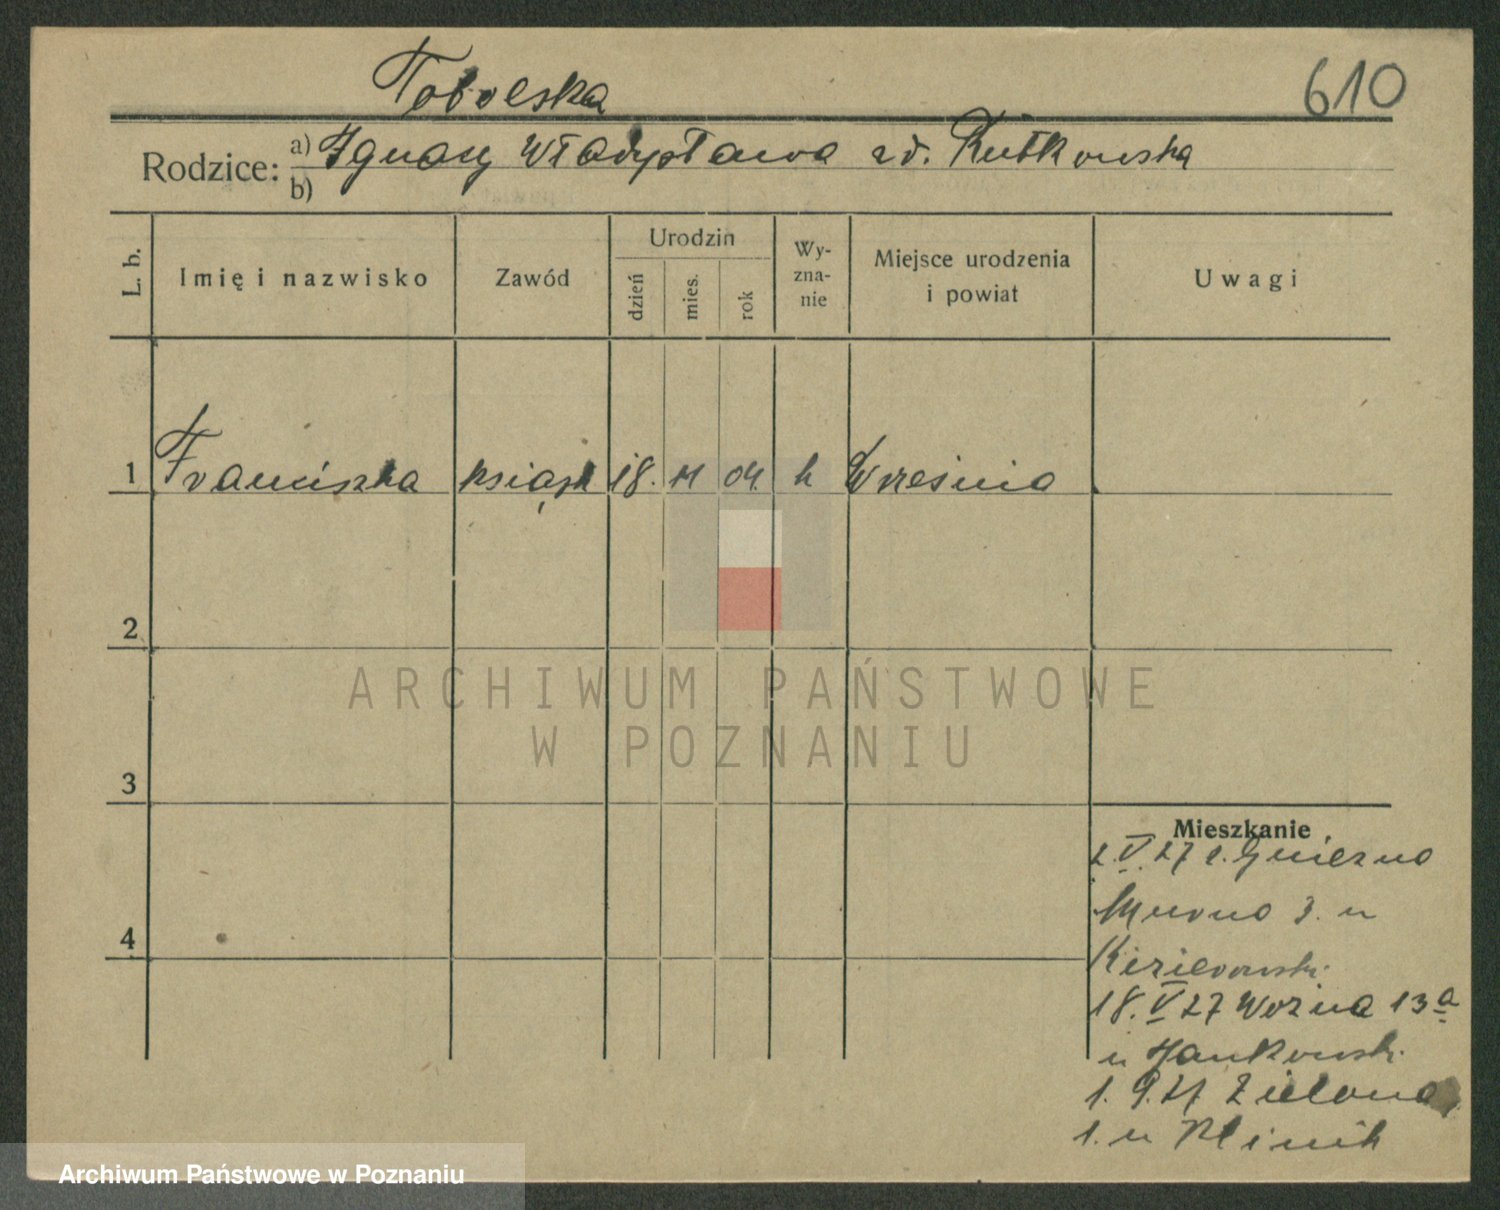 Tobolska
610
Rodzice: a) Ignacy Władysława zd. Rutkowska
b)
L. b.
Imię i nazwisko
Zawód
Urodzin
dzień
mies.
rok
Wy-
zna-
nie
Miejsce urodzenia
i powiat
Uwagi
1 Franciszka książk 18. 11 04. k Września
2
3
4
ARCHIWUM PAŃSTWOWE
W POZNANIU
Mieszkanie
2. V. 27 z. Gniezno
3. u
18. V 27 Woźna 13a
u Jankowski
1. 9. 27 Zielona
1. u Klinik
Archiwum Państwowe w Poznaniu